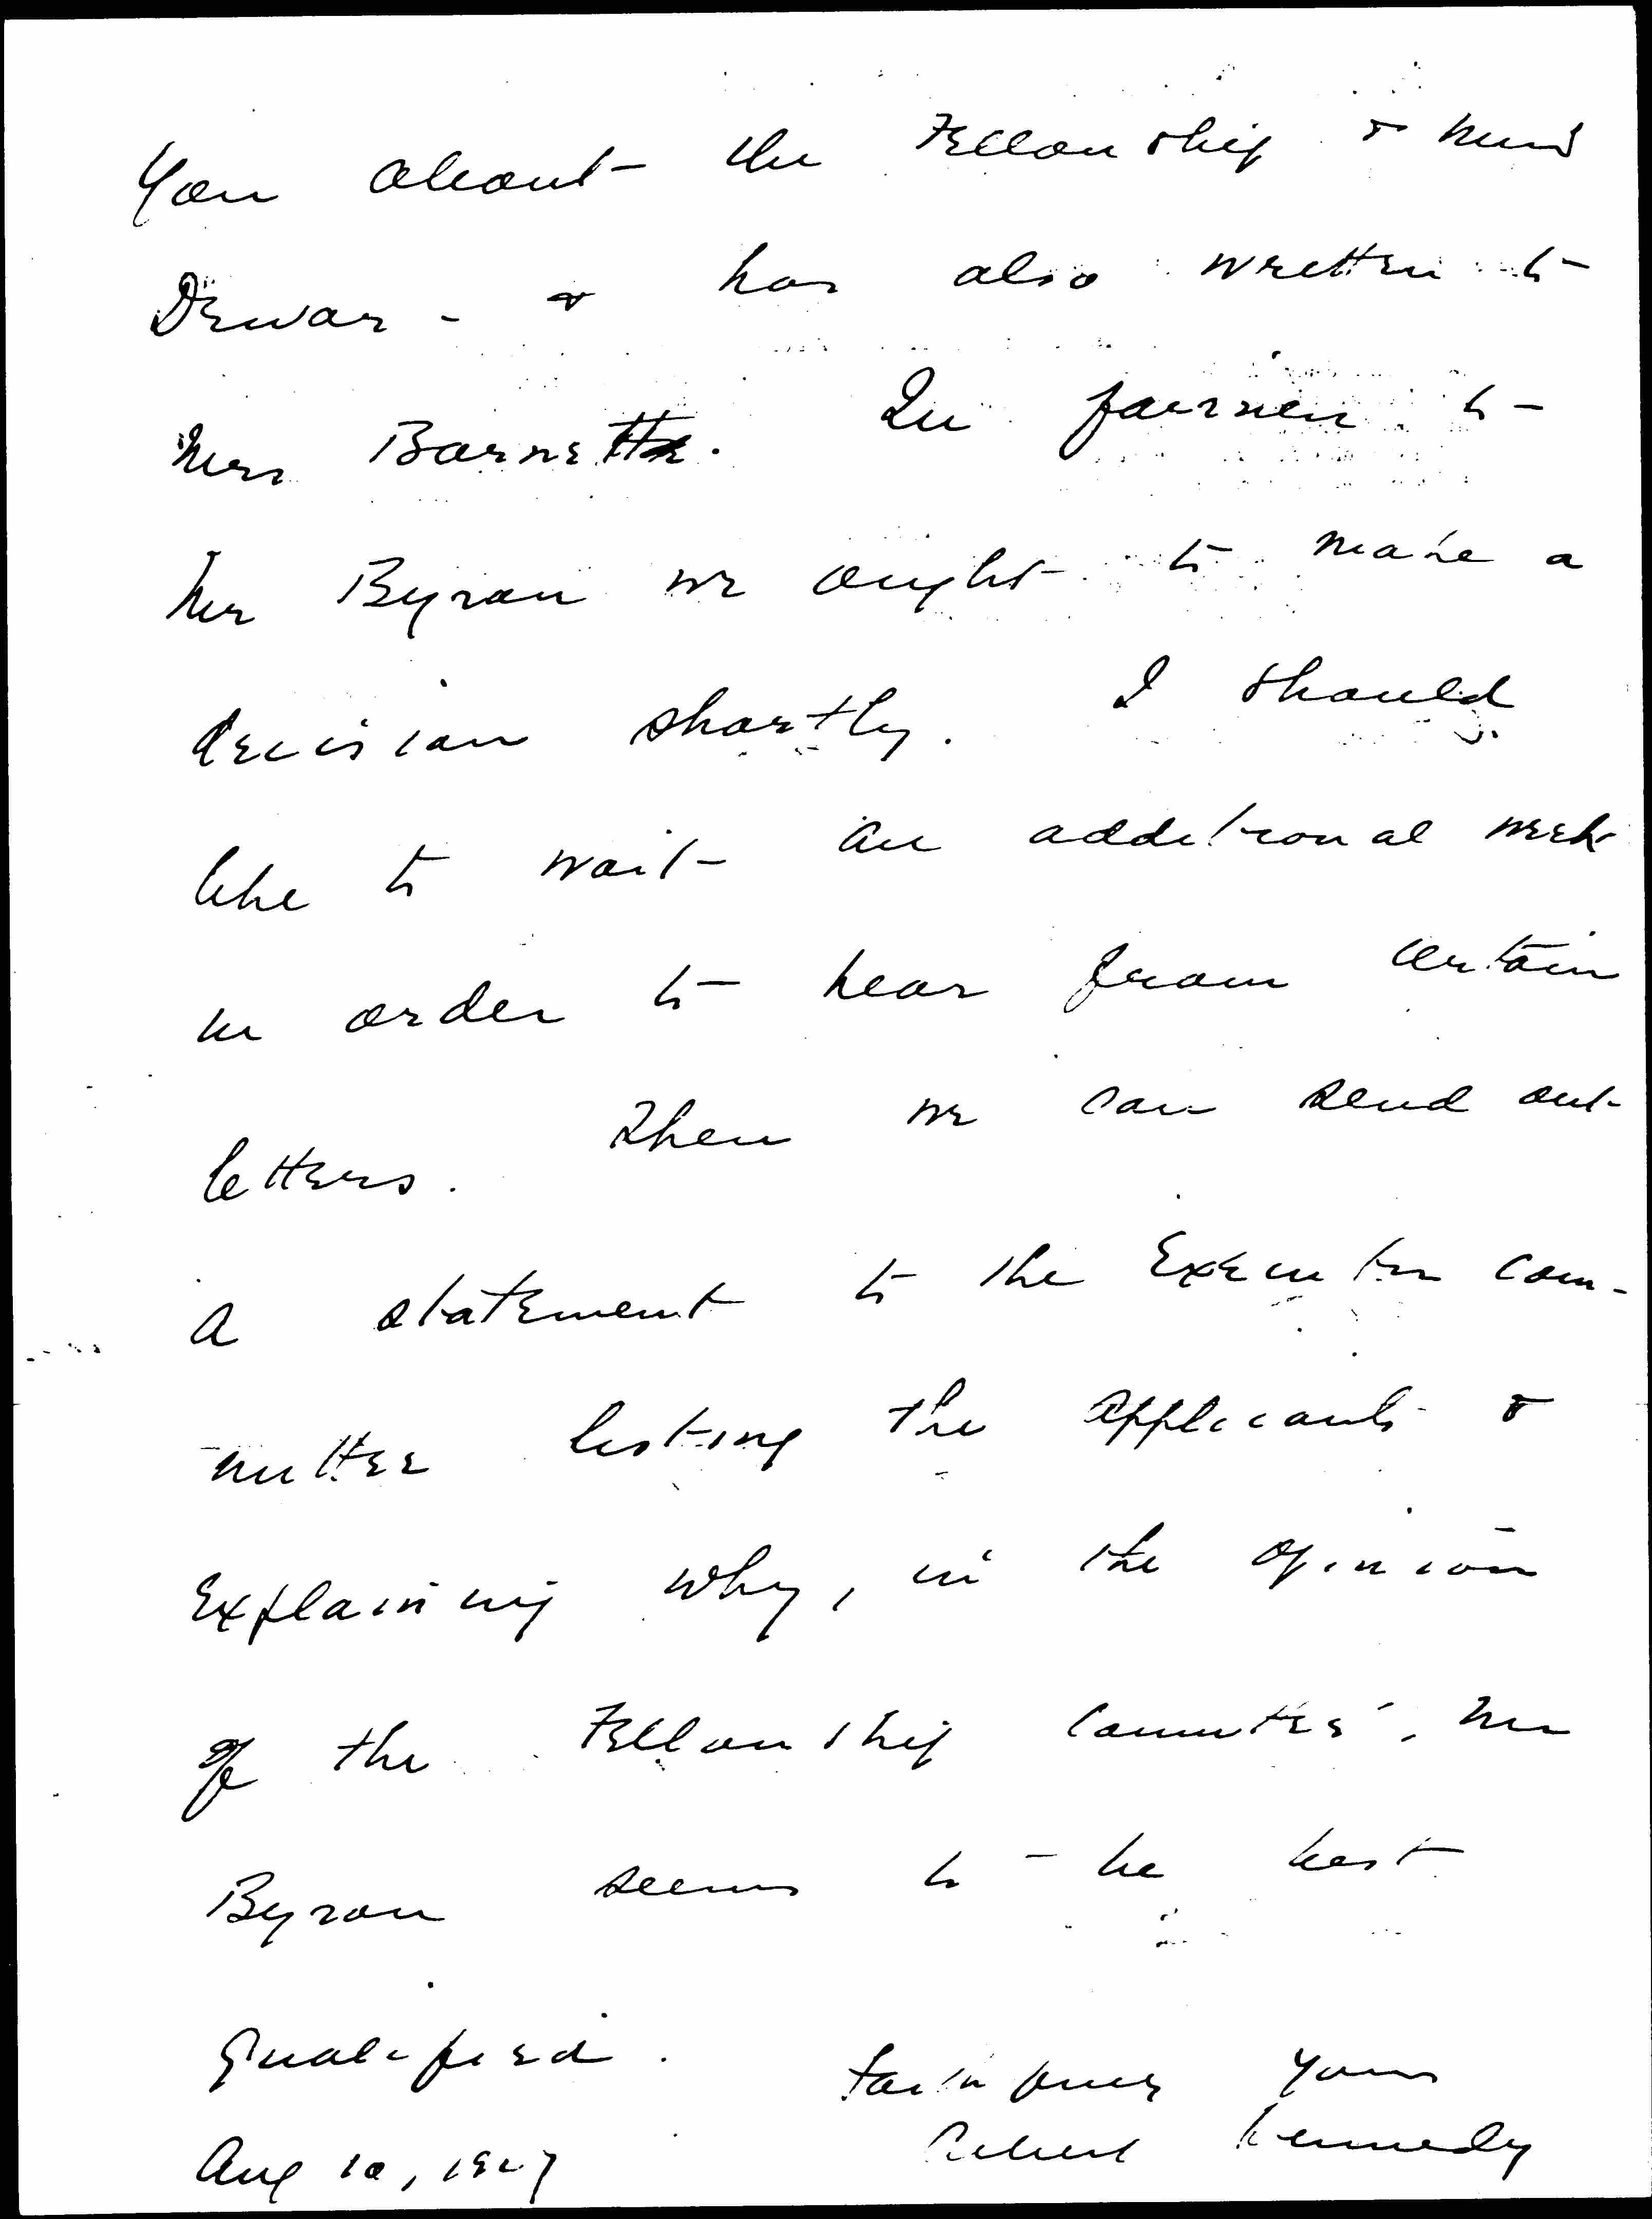 You about the Fellowship & Miss
Dewar - & has also written to
Mrs Barnett. In fairness to
Mr Byron we ought to make a
decision shortly. I should
like to wait an additional week
in order to hear from certain
letters. Then we can send out
a statement to the Executive Com-
mittee listing the applicants &
explaining why, in the opinion
of the Fellowship Committee, Mr
Byron seems to be best
qualified.
Faithfully yours
Albert Kennedy
Aug 10, 1927